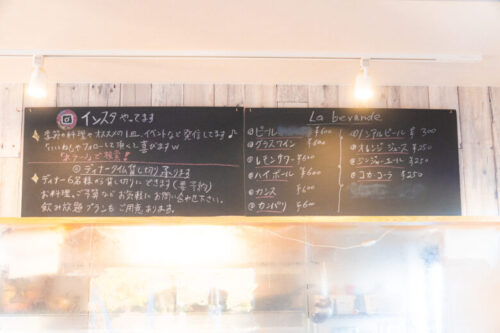 インスタ やってます
季節の料理やオススメの1皿、イベントなど発信してます♪
いいねやフォローして頂くと喜びますw
で検索!
◎ディナータイム貸し切り承ります
ディナー6名様から貸し切りにできます(要予約)
お料理、ご予算などお気軽にお問い合わせ下さい。
飲み放題プランもご用意あります。
La bevande
◎ビール ¥600
◎グラスワイン ¥600
◎レモンサワー ¥600
◎ハイボール ¥600
◎カシス ¥600
◎カンパリ ¥600
◎ノンアルビール ¥300
◎オレンジジュース ¥250
◎ジンジャーエール ¥250
◎コカ・コーラ ¥250